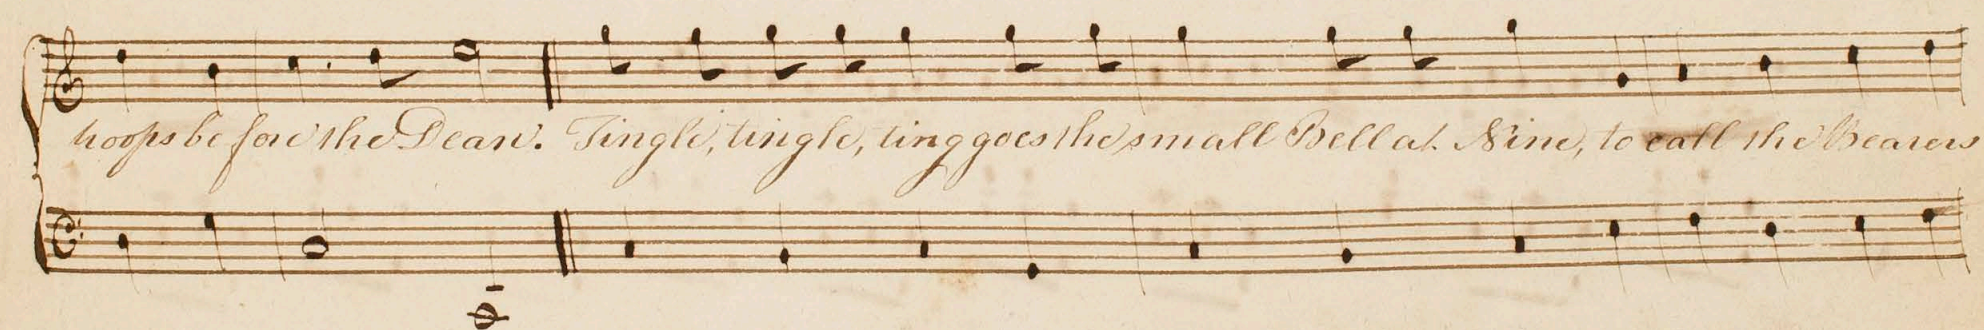 hoops before the Dean. Tingle, tingle, ting goes the small Bell at Nine, to call the Bearers